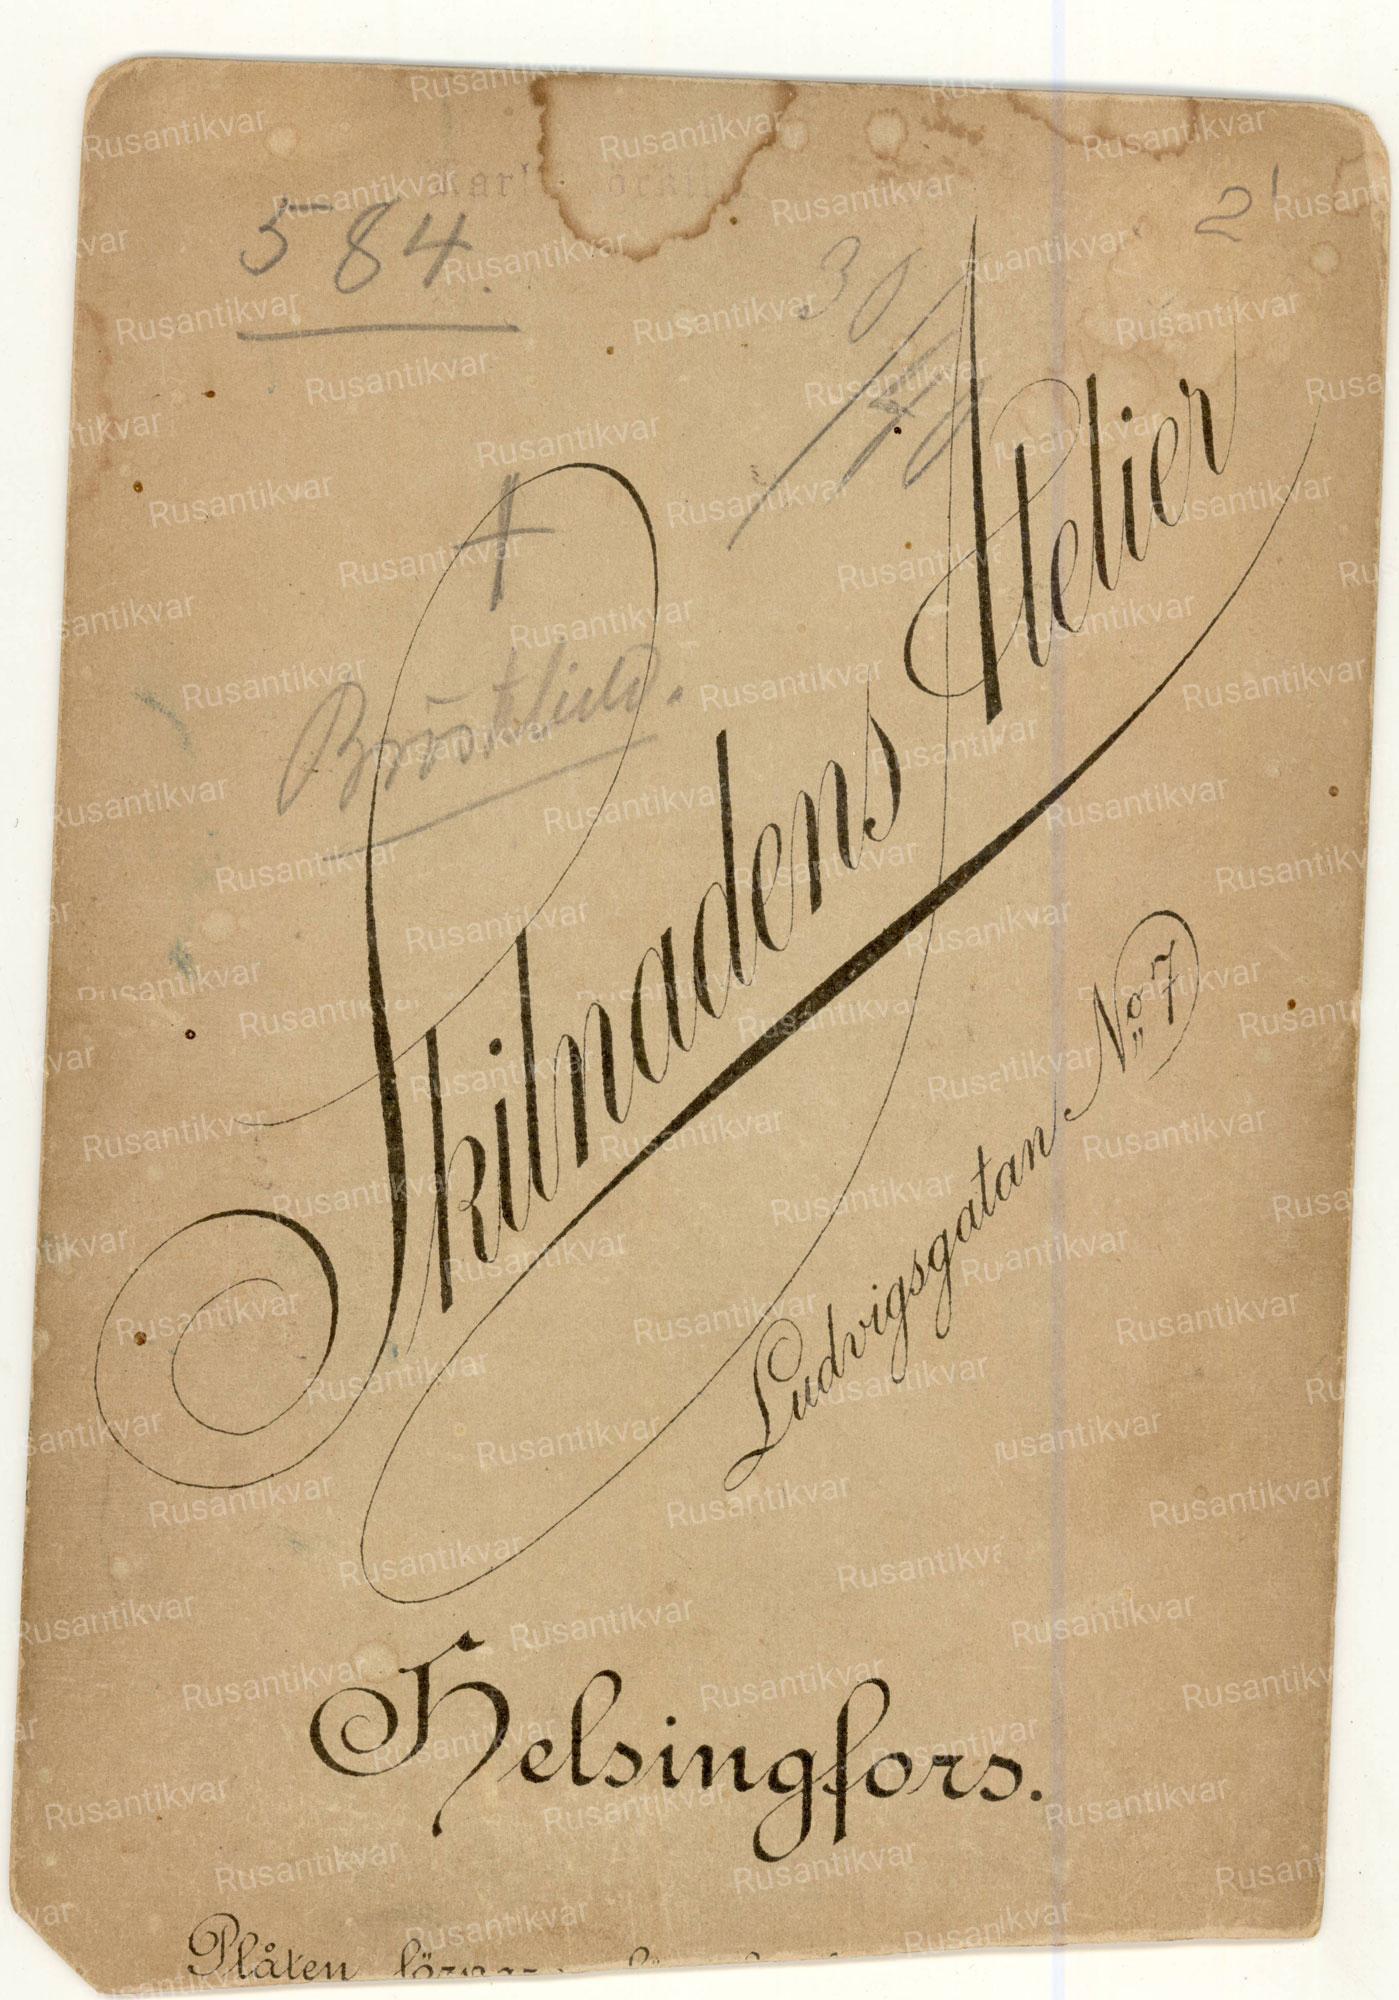 584.
2
30/40
Skilnadens Atelier
Ludvigsgatan No 7
Helsingfors.
Plåten
Rusantikvar